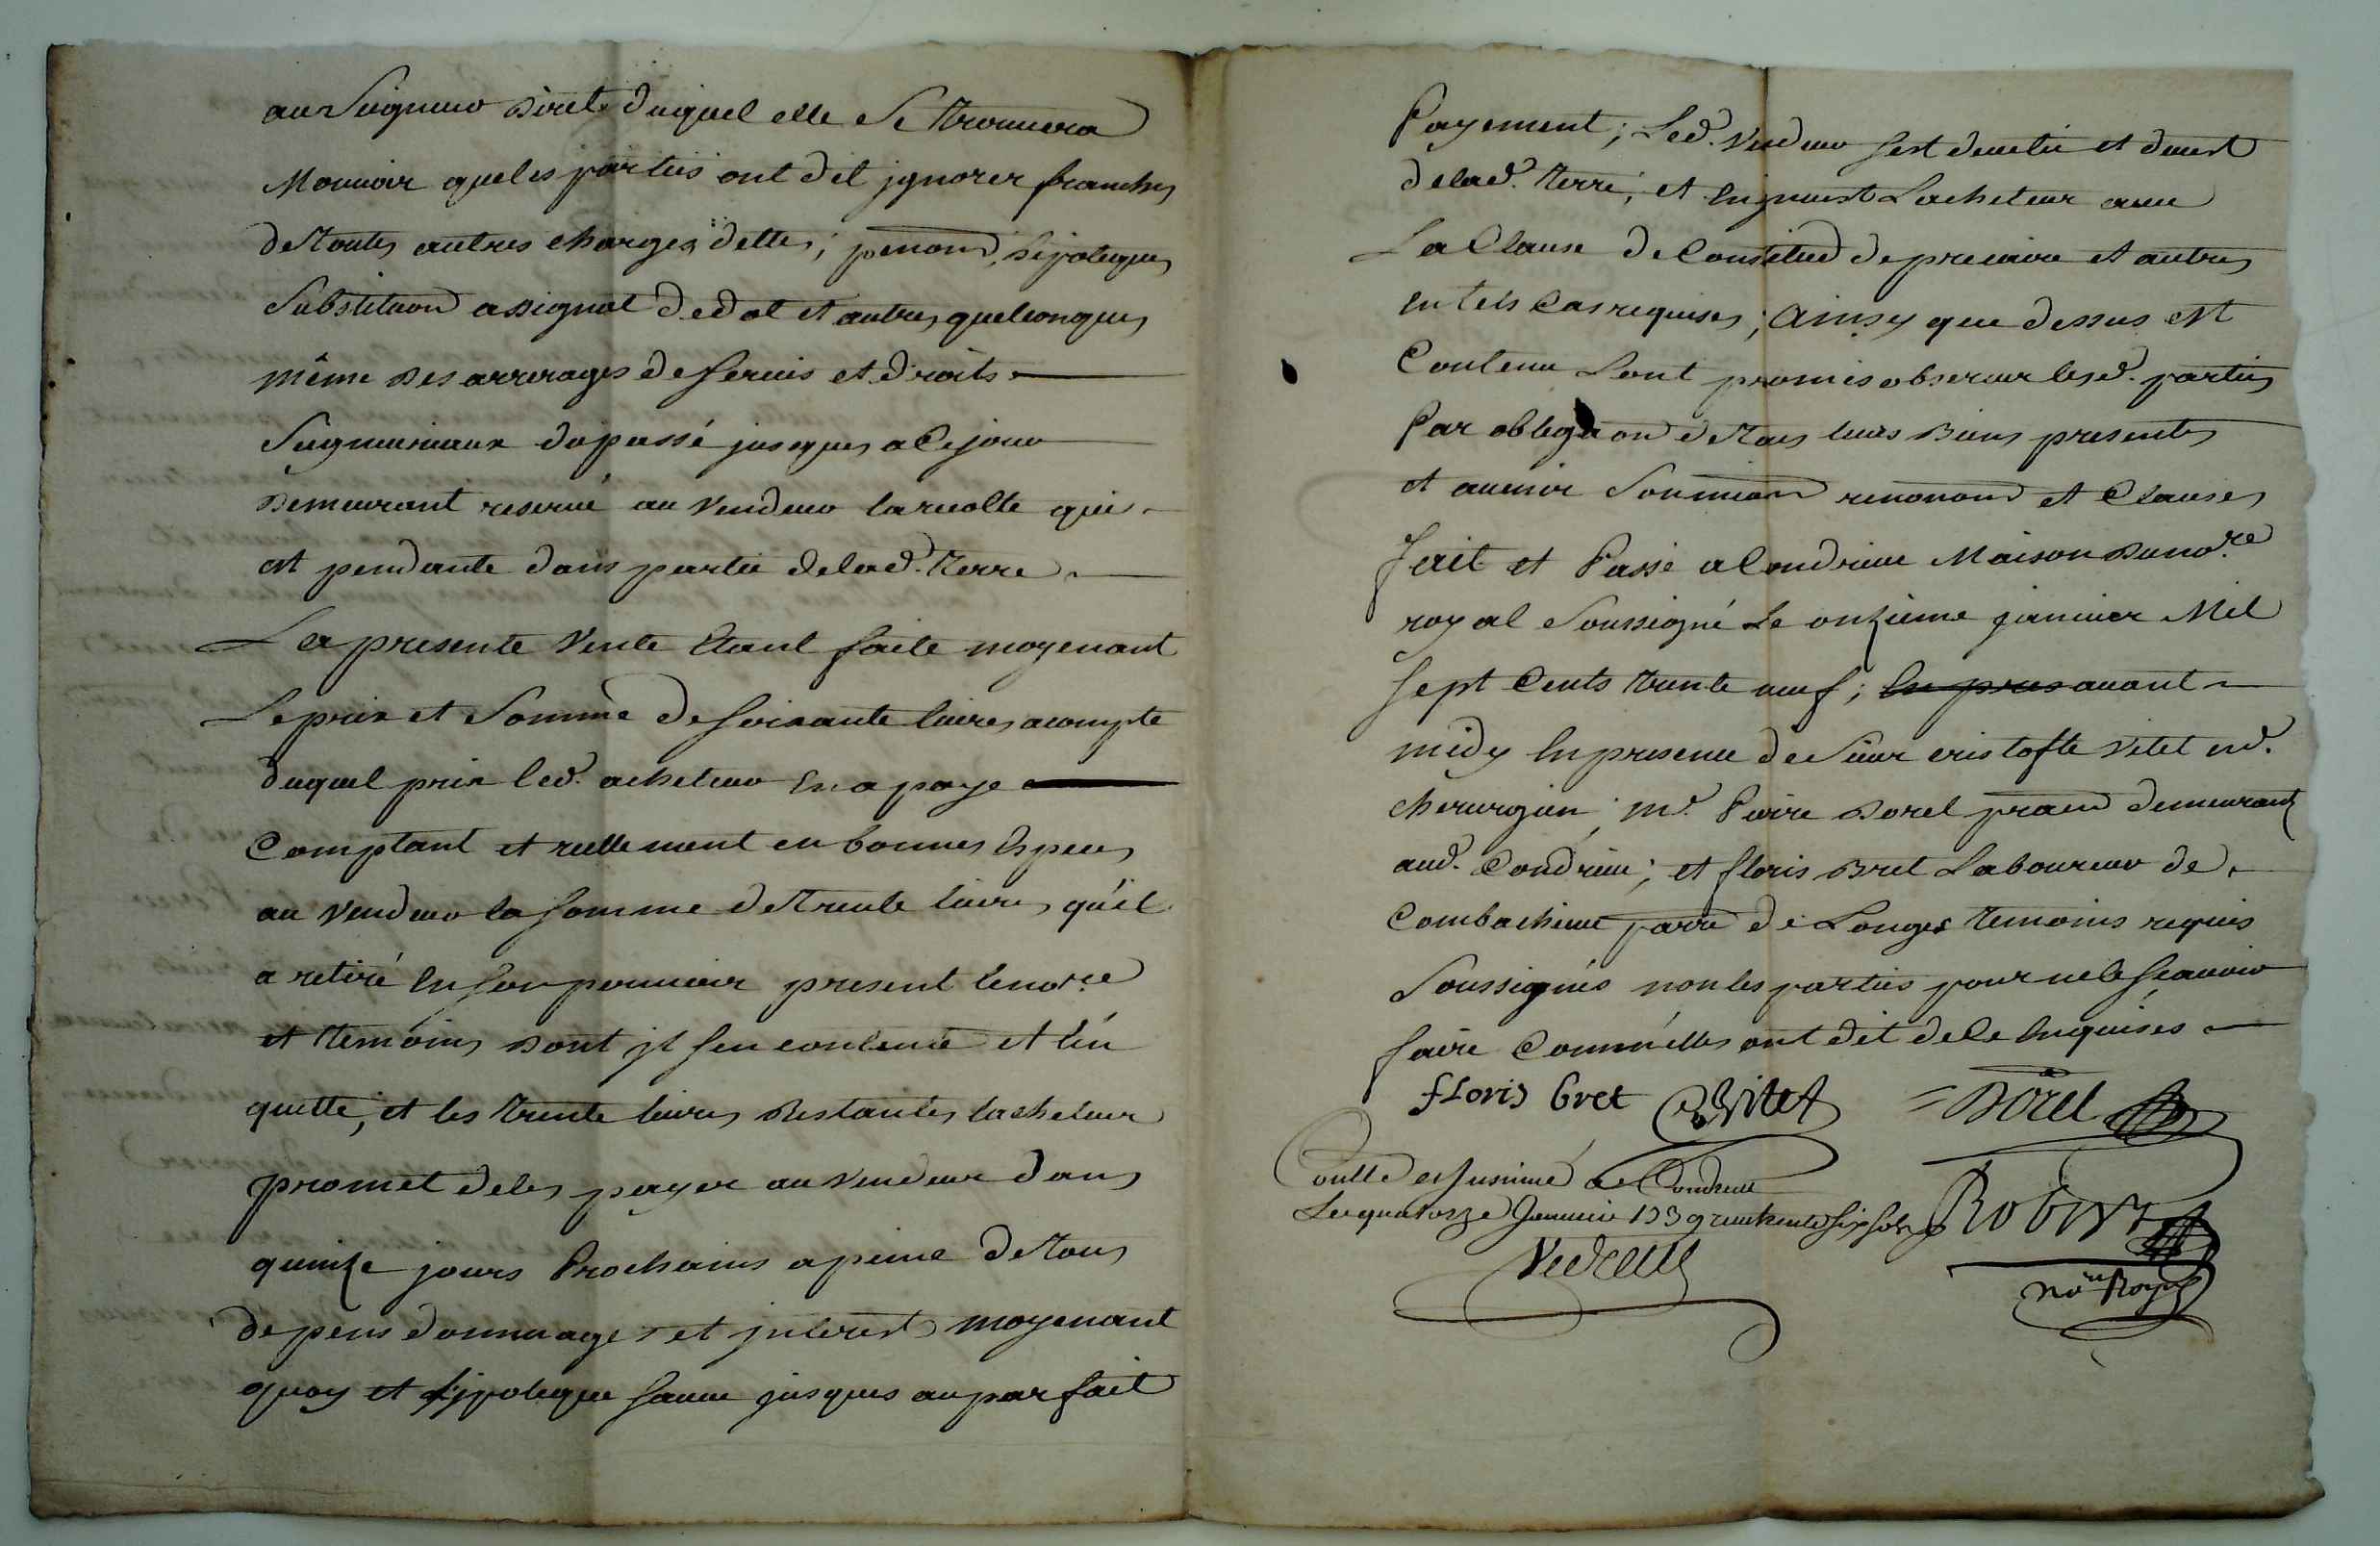 au Seigneur direct duquel elle se trouuera
Mouuoir que les parties ont dit jgnorer franches
de toutes autres charges dettes, penons, hÿpoteques
Substituon assignat de dot et autres quelconques
même des arrerages de seruis et droits
Seigneuriaux du passé jusques a Ce jour
demeurant reserué au Vendeur la recolte qui
est pendante dans partie de lad. terre
La presente Vente Etant faite moyenant
Le prix et Somme de soixante liures acompte
duquel prix led. acheteur En a payé
Comptant et reellement en bonnes Especes
au Vendeur la somme de trente liures qu'il
a retiré En son pouuoir present le no.re
et temoins dont jl s'en contente et l'en
quitte, et les trente liures Restantes lacheteur
promet de les payer au Vendeur dans
quinze jours Prochains a peine de tous
depens dommages et jnterest moyenant
quoy et hÿpoteque sauue jusques au parfait
Payement; Led. Vendeur sest deuetu et deuest
de lad. terre, et En jnuest Lacheteur auec
La Clause de Constitud de precaire et autres
En tels Cas requises; Ainsy que dessus est
Contenu Lont promis obseruer lesd. parties
Par obligaon de tous leurs Biens presents
et auenir Soumission renonons et Clauses
fait et Passé a Condrieu Maison du no.re
royal Soussigné Le onzieme januier Mil
sept Cents trente neuf; En pres auant
midy En presence de Sieur cristofle Vitet md.
cherurgien, Mr. Pierre Dorel pratn demeurants
aud. Condrieu, et floris Bret Laboureur de
Combacheine parre de Longes temoins requis
Soussignés non les parties pour ne le scauoir
faire Comm'elles ont dit de ce Enquises
floris bret CVitet Dorel
Conllé et Jnsinué a Condrieu
Le quatorze Januier 1739 recu trente six sols
Robert
No.re Royal